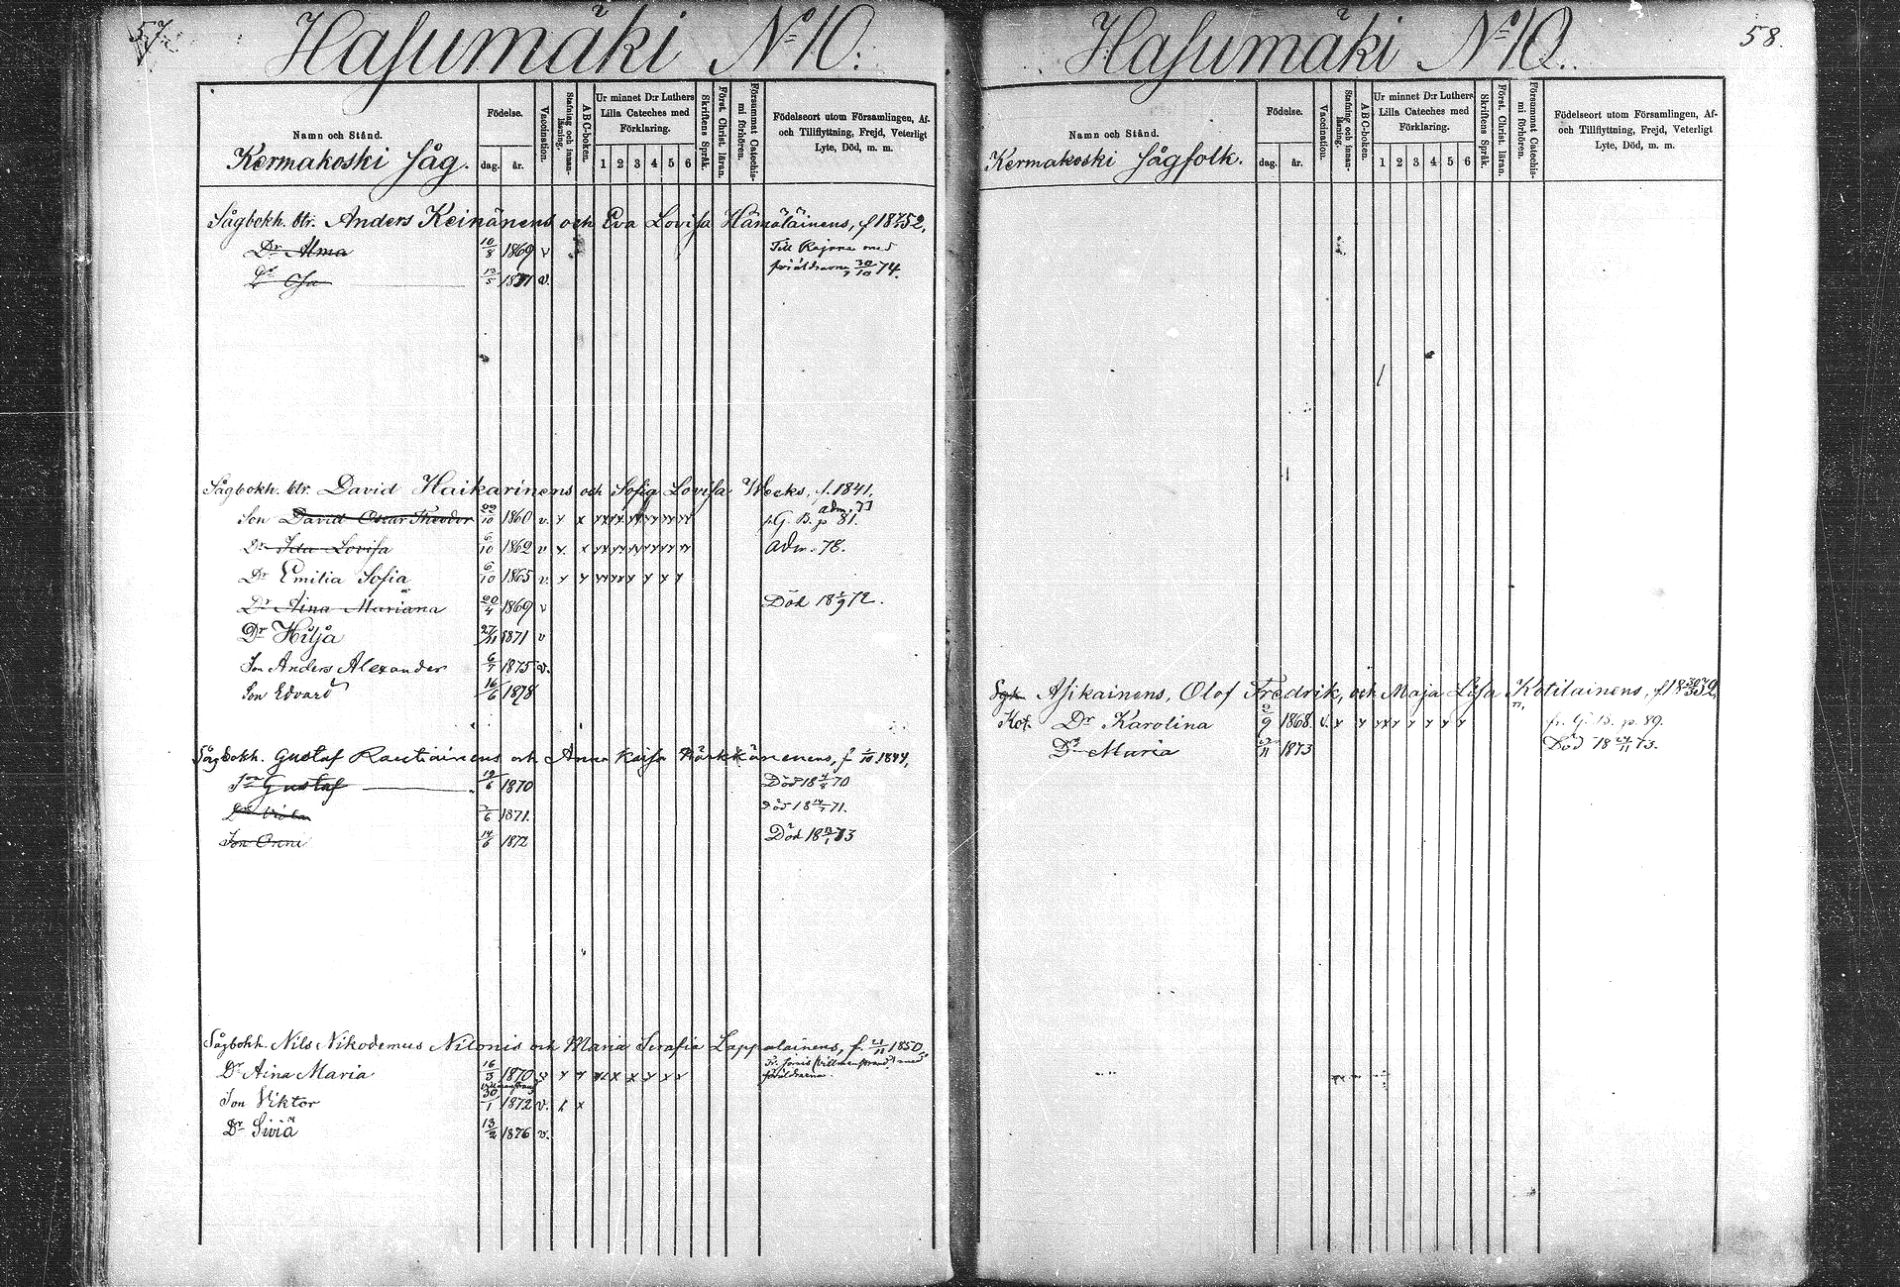 57.
Hasumäki No 10.
Namn och Stånd.
Kermakoski Såg.
Födelse.
dag.
år.
Vaccination.
Stafning och innanläsning.
ABC-boken.
Ur minnet D:r Luthers
Lilla Cateches med
Förklaring.
1 2 3 4 5 6
Skriftens Språk.
Först. Christ. läran.
Försummat Catechismi förhören.
Födelseort utom Församlingen, Af-
och Tillflyttning, Frejd, Veterligt
Lyte, Död, m. m.
Sågbokh. btr. Anders Keinänens och Eva Lovisa Hämäläinens,
Dr Alma 10/8 1869 v Till Rajana med
föräldrarna 30/10 74.
Dr 1871 v.
Sågbokh. btr. David Haikarinens och Sofia Lovisa f. 1841.
Son David Oscar Theodor 22/10 1860 v. adm. 77
f. G. B. p 81.
Dr Ida Lovisa 6/10 1862 v Adm. 78.
Dr Emilia Sofia 6/10 1865 v.
Dr Aina Mariana 20/4 1869 v Död 18 72.
Dr Hilja 27/11 1871 v
Son Anders Alexander 6/7 1875 v.
Son Edvard 16/6 1878
Sågbokh. Gustaf Rautiainens och Anna Kaisa Kärkkänenens, f 1844,
Son Gustaf 12/6 1870 Död 18 70
1871. Död 18 71.
Son Onni 14/6 1872 Död 18 73
Sågbokh. Nils Nikodemus Nilonis och Maria Serafia Lappalainens, f. 1850
Dr Aina Maria 16/3 1870 v med
föräldrarna.
Son Viktor 30/1 1872 v.
Dr Siviä 13/2 1876 v.
Hasumäki No 10.
58.
Namn och Stånd.
Kermakoski Sågfolk.
Födelse.
dag.
år.
Vaccination.
Stafning och innanläsning.
ABC-boken.
Ur minnet D:r Luthers
Lilla Cateches med
Förklaring.
1 2 3 4 5 6
Skriftens Språk.
Först. Christ. läran.
Försummat Catechismi förhören.
Födelseort utom Församlingen, Af-
och Tillflyttning, Frejd, Veterligt
Lyte, Död, m. m.
Asikainens, Olof Fredrik, och Maja Lisa Kotilainens,
Dr Karolina 2/9 1868 v. fr. G. B. p. 89.
Dr Maria 1873 Död 18 73.